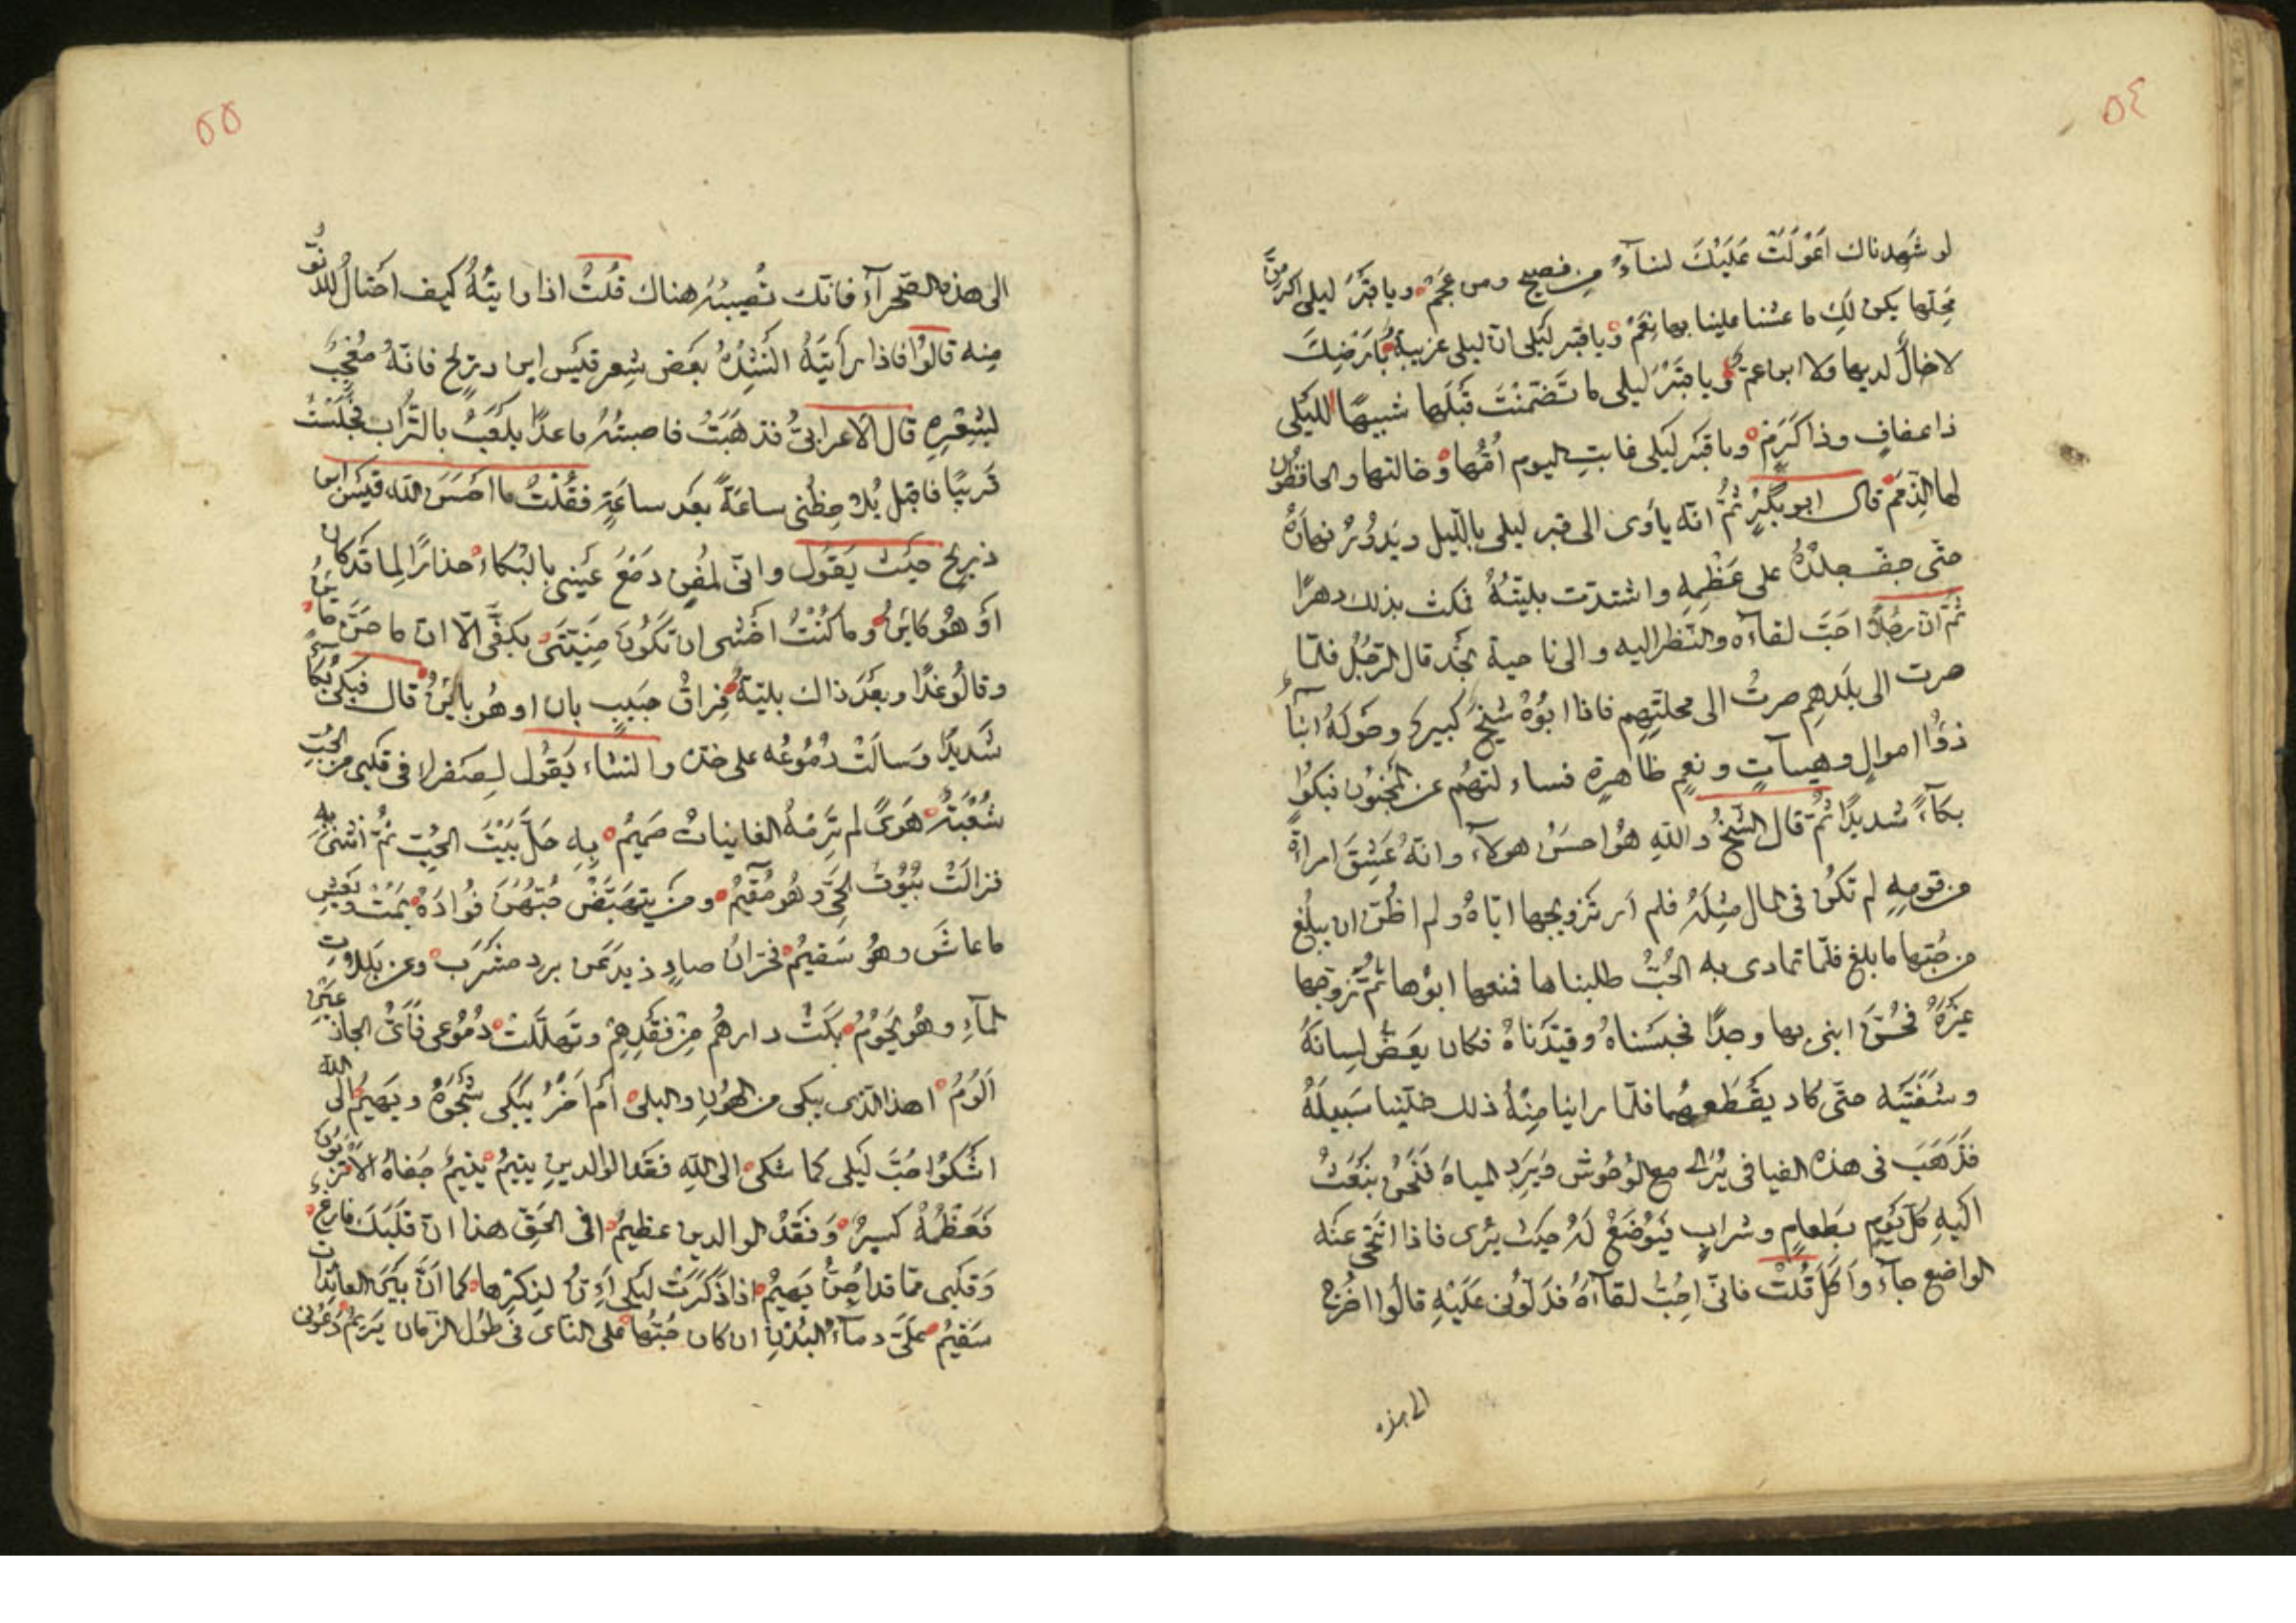 ٥٤
لو شَهِدناك اَعْوَلَتْ عَلَيْكَ نساۤءٌ من فصيح ومن عَجَمْ ويا قَبْرَ ليلى اكرمنَّ
مَحِلّها يكن لَكِ ما عشنا علينا بها نِعَمْ ويا قبر لَيْلى انّ ليلى غريبة بأرضِكَ
لا خالٌ لديها ولا ابن عمّ ويا قبْرَ ليلى ما تَضَمَّنْتَ قَبْلَها شبيهًا لليْلى
ذا عفافٍ وذا كَرَمْ ويا قَبْر لَيْلى غابتِ اليوم اُمُّها وخالتها والحافظون
لها الذِّمَمْ قال ابو بَكْرٍ ثُمَّ انّه يأوى الى قبر ليلى بالّليل ويَدُوْرُ نهارَهُ
حتّى جفّ جلدُهُ على عَظْمِهِ واشتدّت بليّتُهُ فمكث بذلك دهرًا
ثُمّ انّ رجُلاً احَبَّ لقاۤءه والنّظر اليه والى ناحية نَجْد قال الرّجُلُ فلمّا
صرت الى بلَدِهِم صرتُ الى محلّتِهِم فاذا ابُوْهُ شَيْخٌ كبير وحَولَهُ ابناۤءٌ
ذوُوا اموالٍ وهيبآتٍ ونعِمٍ ظاهِرةٍ فسالتهُم عن المَجْنُون فبكَوْا
بكاۤءً شديدًا ثُمّ قال الشّيْخُ واللّهِ هُوَ احسَنُ هولاۤء وانّهُ عَشِقَ امراةً
من قومِهِ لم تكُن فى المال مِثلَهُ فلم اَر تَزويجها ايّاهُ ولم اظُنّ ان يبلُغ
من حُبّها ما بلغ فلمّا تمادى به الحُبُّ طلبناها فمنعها ابُوْها ثُمّ تزوّجها
غيْرُهُ فَجُنَّ ابنى بها وجدًا فحبَسْناهُ وقيّدْناهُ فكان يَعَضُّ لِسانَهُ
وشَفَتَيْه حتّى كاد يقْطَعهُما فلمّا راينا مِنْهُ ذلك خلّيْنا سَبيلَهُ
فذَهَبَ فى هذه الفيافى يُرى مع الوُحُوْش ويَرِد المياهَ فنَحْنُ نبْعَثُ
اليهِ كلّ يَوْمٍ بَطعامٍ وشرابٍ فيُوْضَعُ لَهُ حيْثُ يَرى فاذا انَتَحّى عنْه
الواضع جاۤء واَكَلَ قُلْتُ فانّى اُحِبُّ لقاۤءَهُ فدَلّونى عَلَيْهِ قالُوا اخْرُجْ
الى هذه
٥٥
الى هذه الصّحرآۤءِ فانّك تُصيبُهُ هناك قُلْتُ اذا رايتُهُ كيف احتالُ للدّنوّ
مِنه قالُوْا فاذا رأيتَهُ انشِدْهُ بعْضَ شِعر قيْس ابن ذريح فانّهُ مُعْجِبٌ
بشِعْرِهِ قال الاعرابىُّ فذهَبْتُ فاصبتُهُ قاعدًا يلْعَبُ بالتُّراب فجَلَسْتُ
قَريبًا فاقبل يُلاحِظُنى ساعَةً بعْد ساعَةٍ فقُلْتُ ما احْسَنَ واللّه قيْس ابن
ذريح حيْثُ يَقُول وانّى لمُفْنٍ دَمْعَ عَيْنى بالبُكاۤء حذارًا لِما قَدْ كان
اَوْ هُو كايِنُ وما كُنْتُ اخْشى ان تَكُوْنَ مَنِيَّتى بكفّى الّا انّ ما حَنَّ حاينُ
وقالُوا غدًا وبعْدَ ذاك بليّةٌ فِراقُ حَبيبٍ بان اوهُو باينُ قال فبَكى بُكاۤءً
شَديدًا وسَالَتْ دُمُوعُه على خدّه وانشاء يَقُول لصفراۤ فى قلبى من الحُبِّ
شُعْبَةٌ هَوىً لم تَرُمْهُ الغانياتُ صَميْمُ بِهِ حَلَّ بَيْتَ الحُبّ ثُمَّ انثَنى بِهِ
فزالَتْ بُيُوْتُ الحَىِّ وهُو مُقيْمُ ومَن يتهَبّضْ حُبّهُنَّ فُوادَهُ يَمُتْ ويَعِيش
ما عاشَ وهُو سَقيمُ فحَرّانُ صادٍ ذيدَ عَن برد مشرَب وعن بَلَلاتِ
المآۤءِ وهُو يَحُوْمُ بَكَتْ دارهُم مِن فقْدِهِمْ وتَهلّلَتْ دُمُوْعى فاَىُّ الجازعَيْنِ
اَلُوْمُ اهذا الّذى يبكى من الهُونِ والبِلى اَمْ اخَرُ يَبْكى شَجْوَهُ ويَهيْمُ الى اللّه
اشْكُوا حُبَّ لَيْلى كما شكى الى اللّهِ فقْد الوالدينِ يتيْمُ يتيْمٌ جَفاهُ الاَقْربُونَ
فعَظْمُهُ كسيرٌ وفَقْدُ الوالدين عظيمُ افى الحَقّ هذا انّ قلْبَكَ فارغٌ
وَقلْبى ممّا قد اُجِنُّ يَهيْمُ اذا ذُكِرَتْ ليْلى اَئِنُّ لِذِكْرِها كما اَنَّ بيْنَ العائِداتِ
سَقيْمُ عَلَىَّ دماۤءُ البُدْنِ ان كان حُبُّها على النّأى فى طُوْل الزّمان يَريْمُ دَعُونى